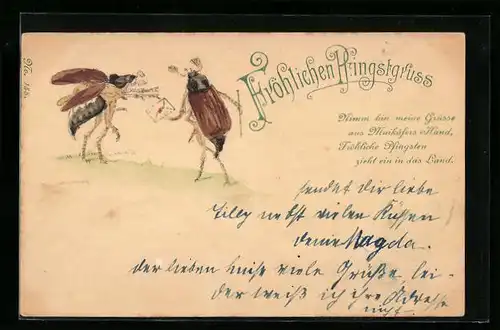 No. 188.
Fröhlichen Pfingstgruss
Nimm hin meine Grüsse
aus Maikäfers Hand,
Fröhliche Pfingsten
zieht ein in das Land.
sendet dir liebe
Tilly nebst vielen Küssen
deine Magda.
der lieben viele Grüße, lei-
der weiß ich ihre Adresse
nicht.